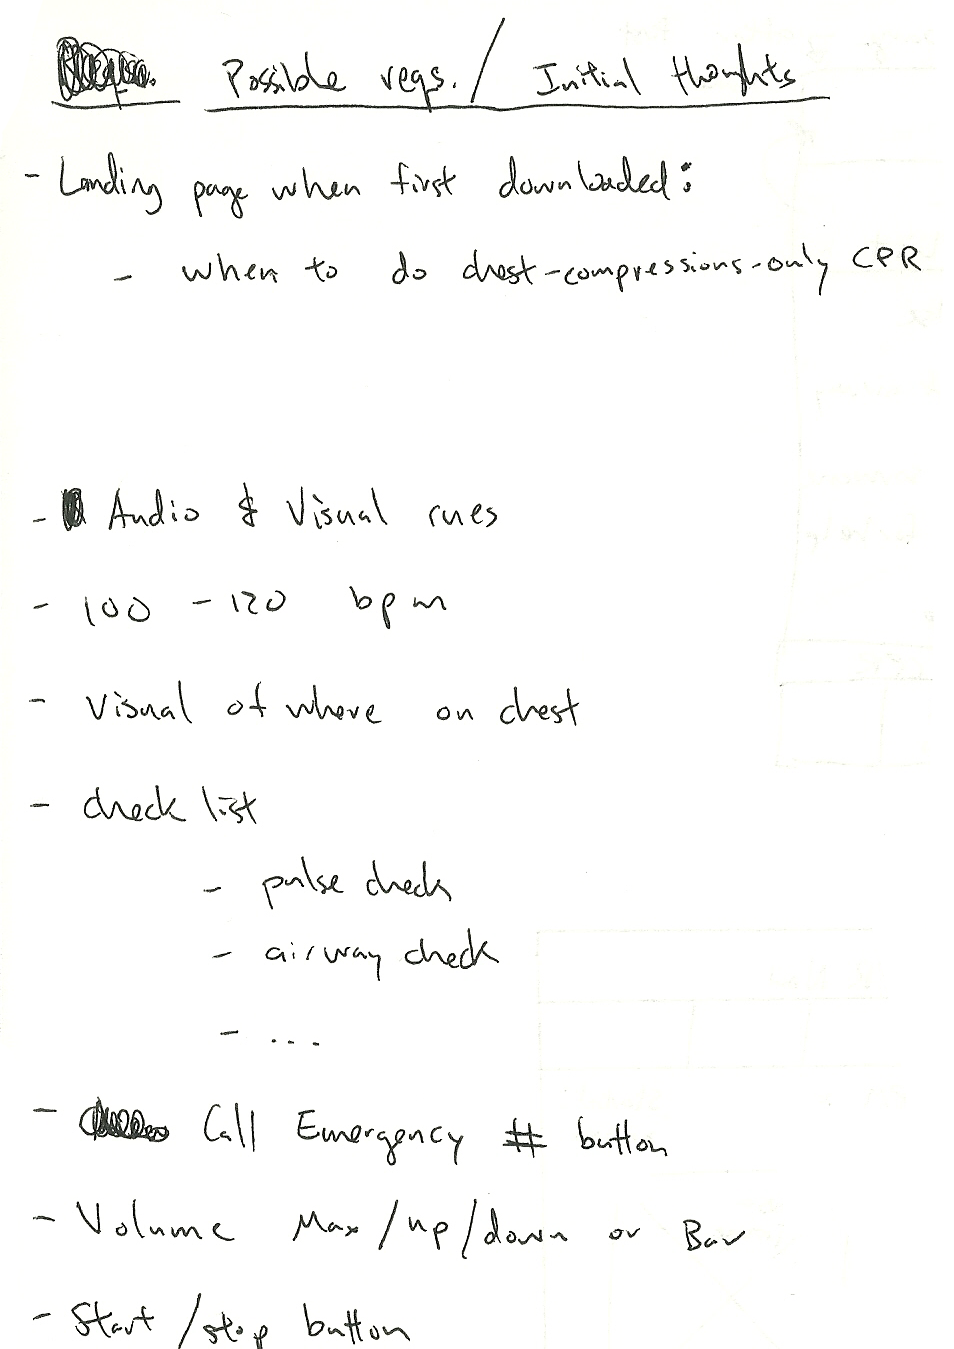 Possible reqs. / Initial thoughts
- Landing page when first downloaded:
- when to do chest-compressions-only CPR
- Audio & Visual cues
- 100 - 120 bpm
- Visual of where on chest
- check list
- pulse check
- airway check
- ...
- Call Emergency # button
- Volume Max/up/down or Bar
- Start/stop button